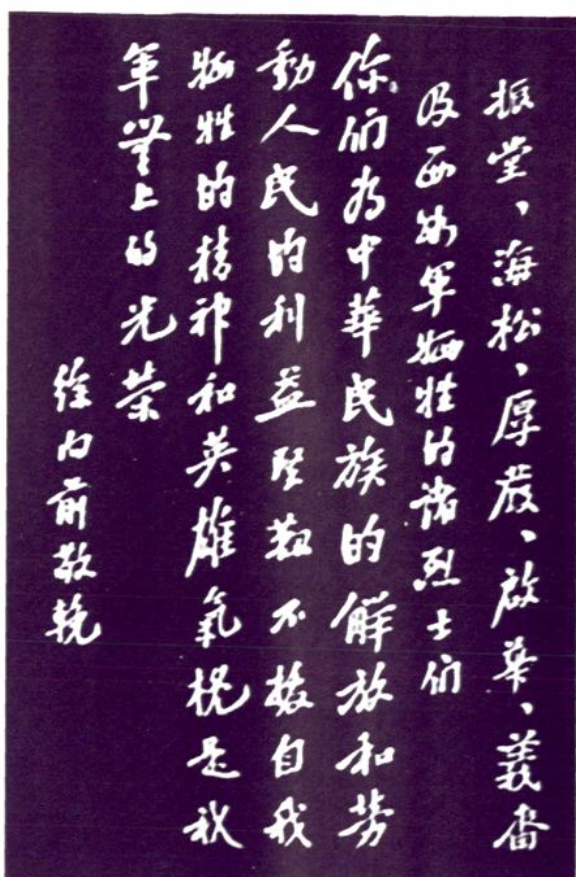 振堂、海松、厚發、啟華、義斋
及西路军牺牲的諸烈士们
你们为中華民族的解放和劳
動人民的利益坚韌不拔自我
牺牲的精神和英雄氣概是我
军上的光荣
徐向前敬輓